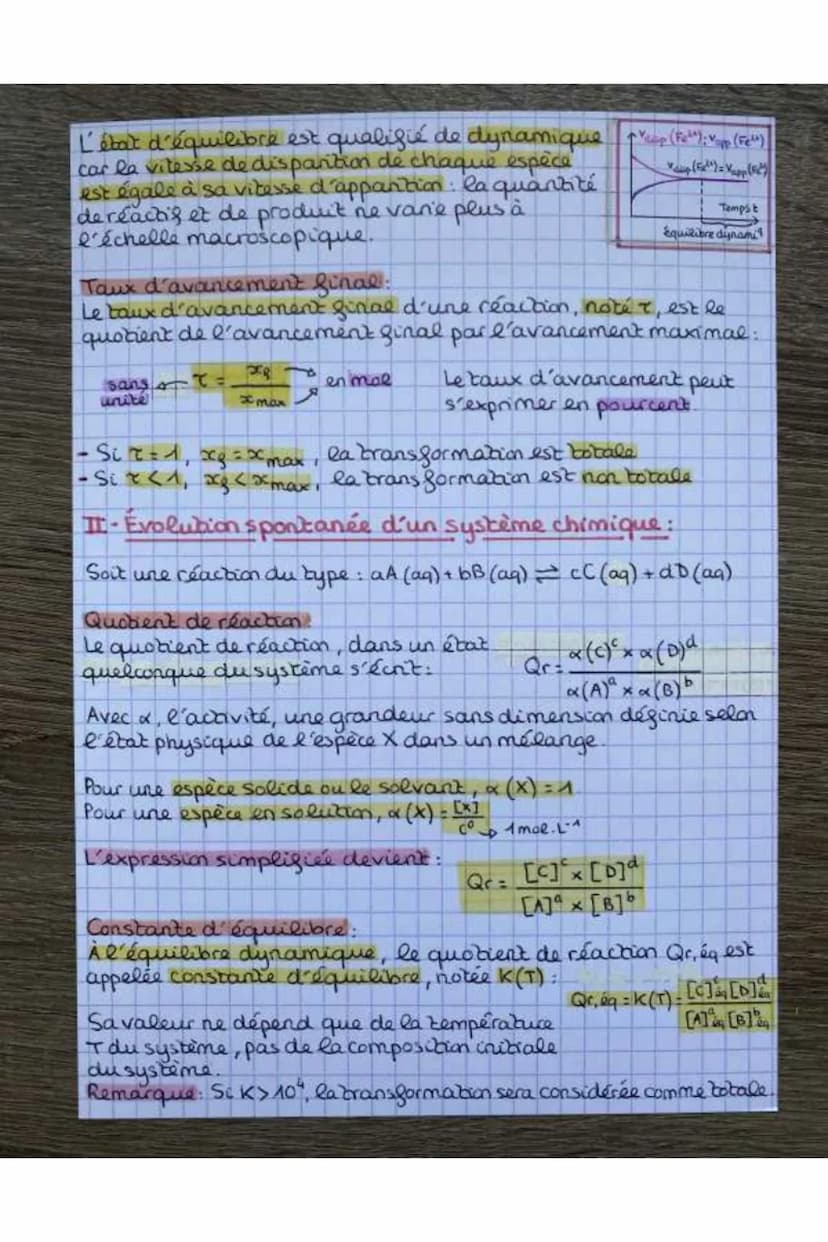 L'état d'équilibre est qualifié de dynamique
car la vitesse de disparition de chaque espèce
est égale à sa vitesse d'apparition : la quantité
de réactif et de produit ne varie plus à
l'échelle macroscopique.
vdisp (Fe²⁺) ; vapp (Fe²⁺)
vdisp (Fe²⁺) = vapp (Fe²⁺)
Temps t
équilibre dynami^q
Taux d'avancement final :
Le taux d'avancement final d'une réaction, noté τ, est le
quotient de l'avancement final par l'avancement maximal :
sans unité ← τ = xf / xmax → en mol
Le taux d'avancement peut
s'exprimer en pourcent.
- Si τ = 1, xf = xmax, la transformation est totale
- Si τ < 1, xf < xmax, la transformation est non totale
II - Évolution spontanée d'un système chimique :
Soit une réaction du type : aA (aq) + bB (aq) ⇌ cC (aq) + dD (aq)
Quotient de réaction
Le quotient de réaction, dans un état
quelconque du système s'écrit :
Qr = α(C)^c × α(D)^d / α(A)^a × α(B)^b
Avec α, l'activité, une grandeur sans dimension définie selon
l'état physique de l'espèce X dans un mélange.
Pour une espèce solide ou le solvant, α (X) = 1
Pour une espèce en solution, α (X) = [X] / C⁰ → 1 mol.L⁻¹
L'expression simplifiée devient :
Qr = [C]^c × [D]^d / [A]^a × [B]^b
Constante d'équilibre :
À l'équilibre dynamique, le quotient de réaction Qr,éq est
appelée constante d'équilibre, notée K(T) :
Qr,éq = K(T) = [C]^c éq [D]^d éq / [A]^a éq [B]^b éq
Sa valeur ne dépend que de la température
T du système, pas de la composition initiale
du système.
Remarque : Si K > 10⁴, la transformation sera considérée comme totale.